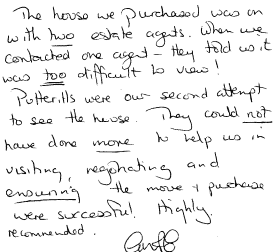 The house we purchased was on
with two estate agents. When we
contacted one agent - they told us it
was too difficult to view!
Putterills were our second attempt
to see the house. They could not
have done more to help us in
visiting, negotiating and
ensuring the move + purchase
were successful. Highly
recommended.